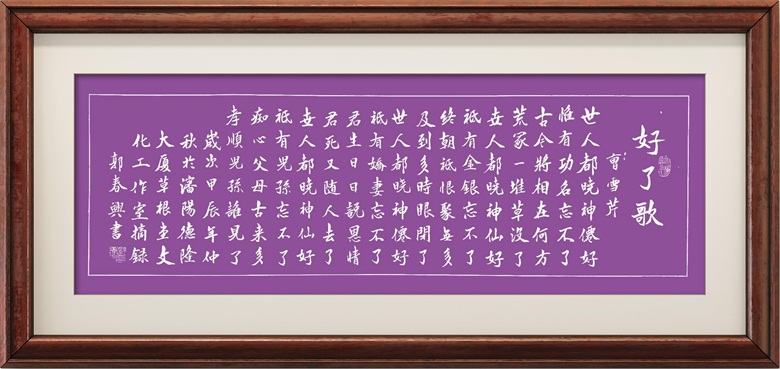 好了歌
曹雪芹
世人都晓神僊好
惟有功名忘不了
古今将相在何方
荒冢一堆草没了
世人都晓神仙好
祗有金银忘不了
终朝祗恨聚無多
及到多時眼閉了
世人都晓神僊好
祗有嬌妻忘不了
君生日日説恩情
君死又随人去了
世人都晓神仙好
祗有兒孫忘不了
痴心父母古来多
孝順兒孫誰見了
歲次甲辰年仲
秋於瀋陽德隆
大厦草根藝文
化工作室摘録
郭春興書